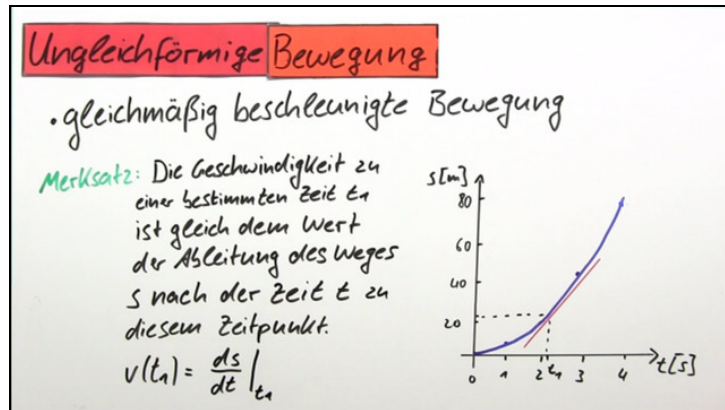 Ungleichförmige Bewegung
• gleichmäßig beschleunigte Bewegung
Merksatz: Die Geschwindigkeit zu
einer bestimmten Zeit t₁
ist gleich dem Wert
der Ableitung des Weges
s nach der Zeit t zu
diesem Zeitpunkt.
v(t₁) = ds/dt |t₁
s[m]
80
60
40
20
0 1 2 t₁ 3 4 t[s]